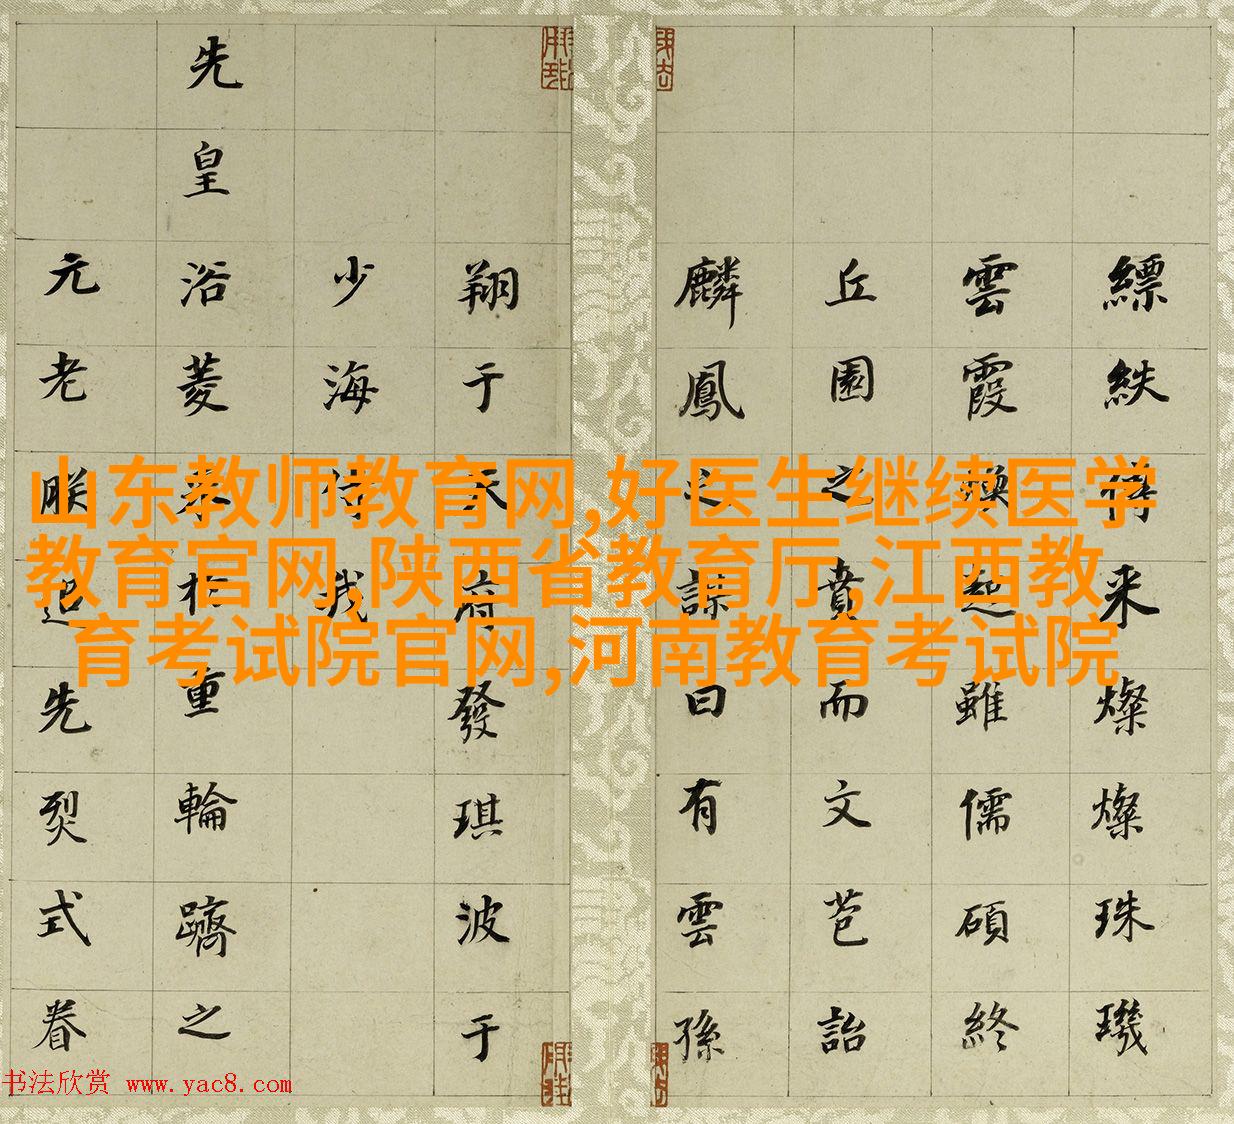 縹紩来燦燦珠璣
雲霞雖儒碩終
丘園之賁而文芭詒
麟鳳之謀曰有雲孫
翔于天府發琪波于
少海我
先皇浴菱重輪躋之
元老朕起先烈式眷
山东教师教育网,好医生继续医学
教育官网,陕西省教育厅,江西教
育考试院官网,河南教育考试院
书法欣赏 www.yac8.com